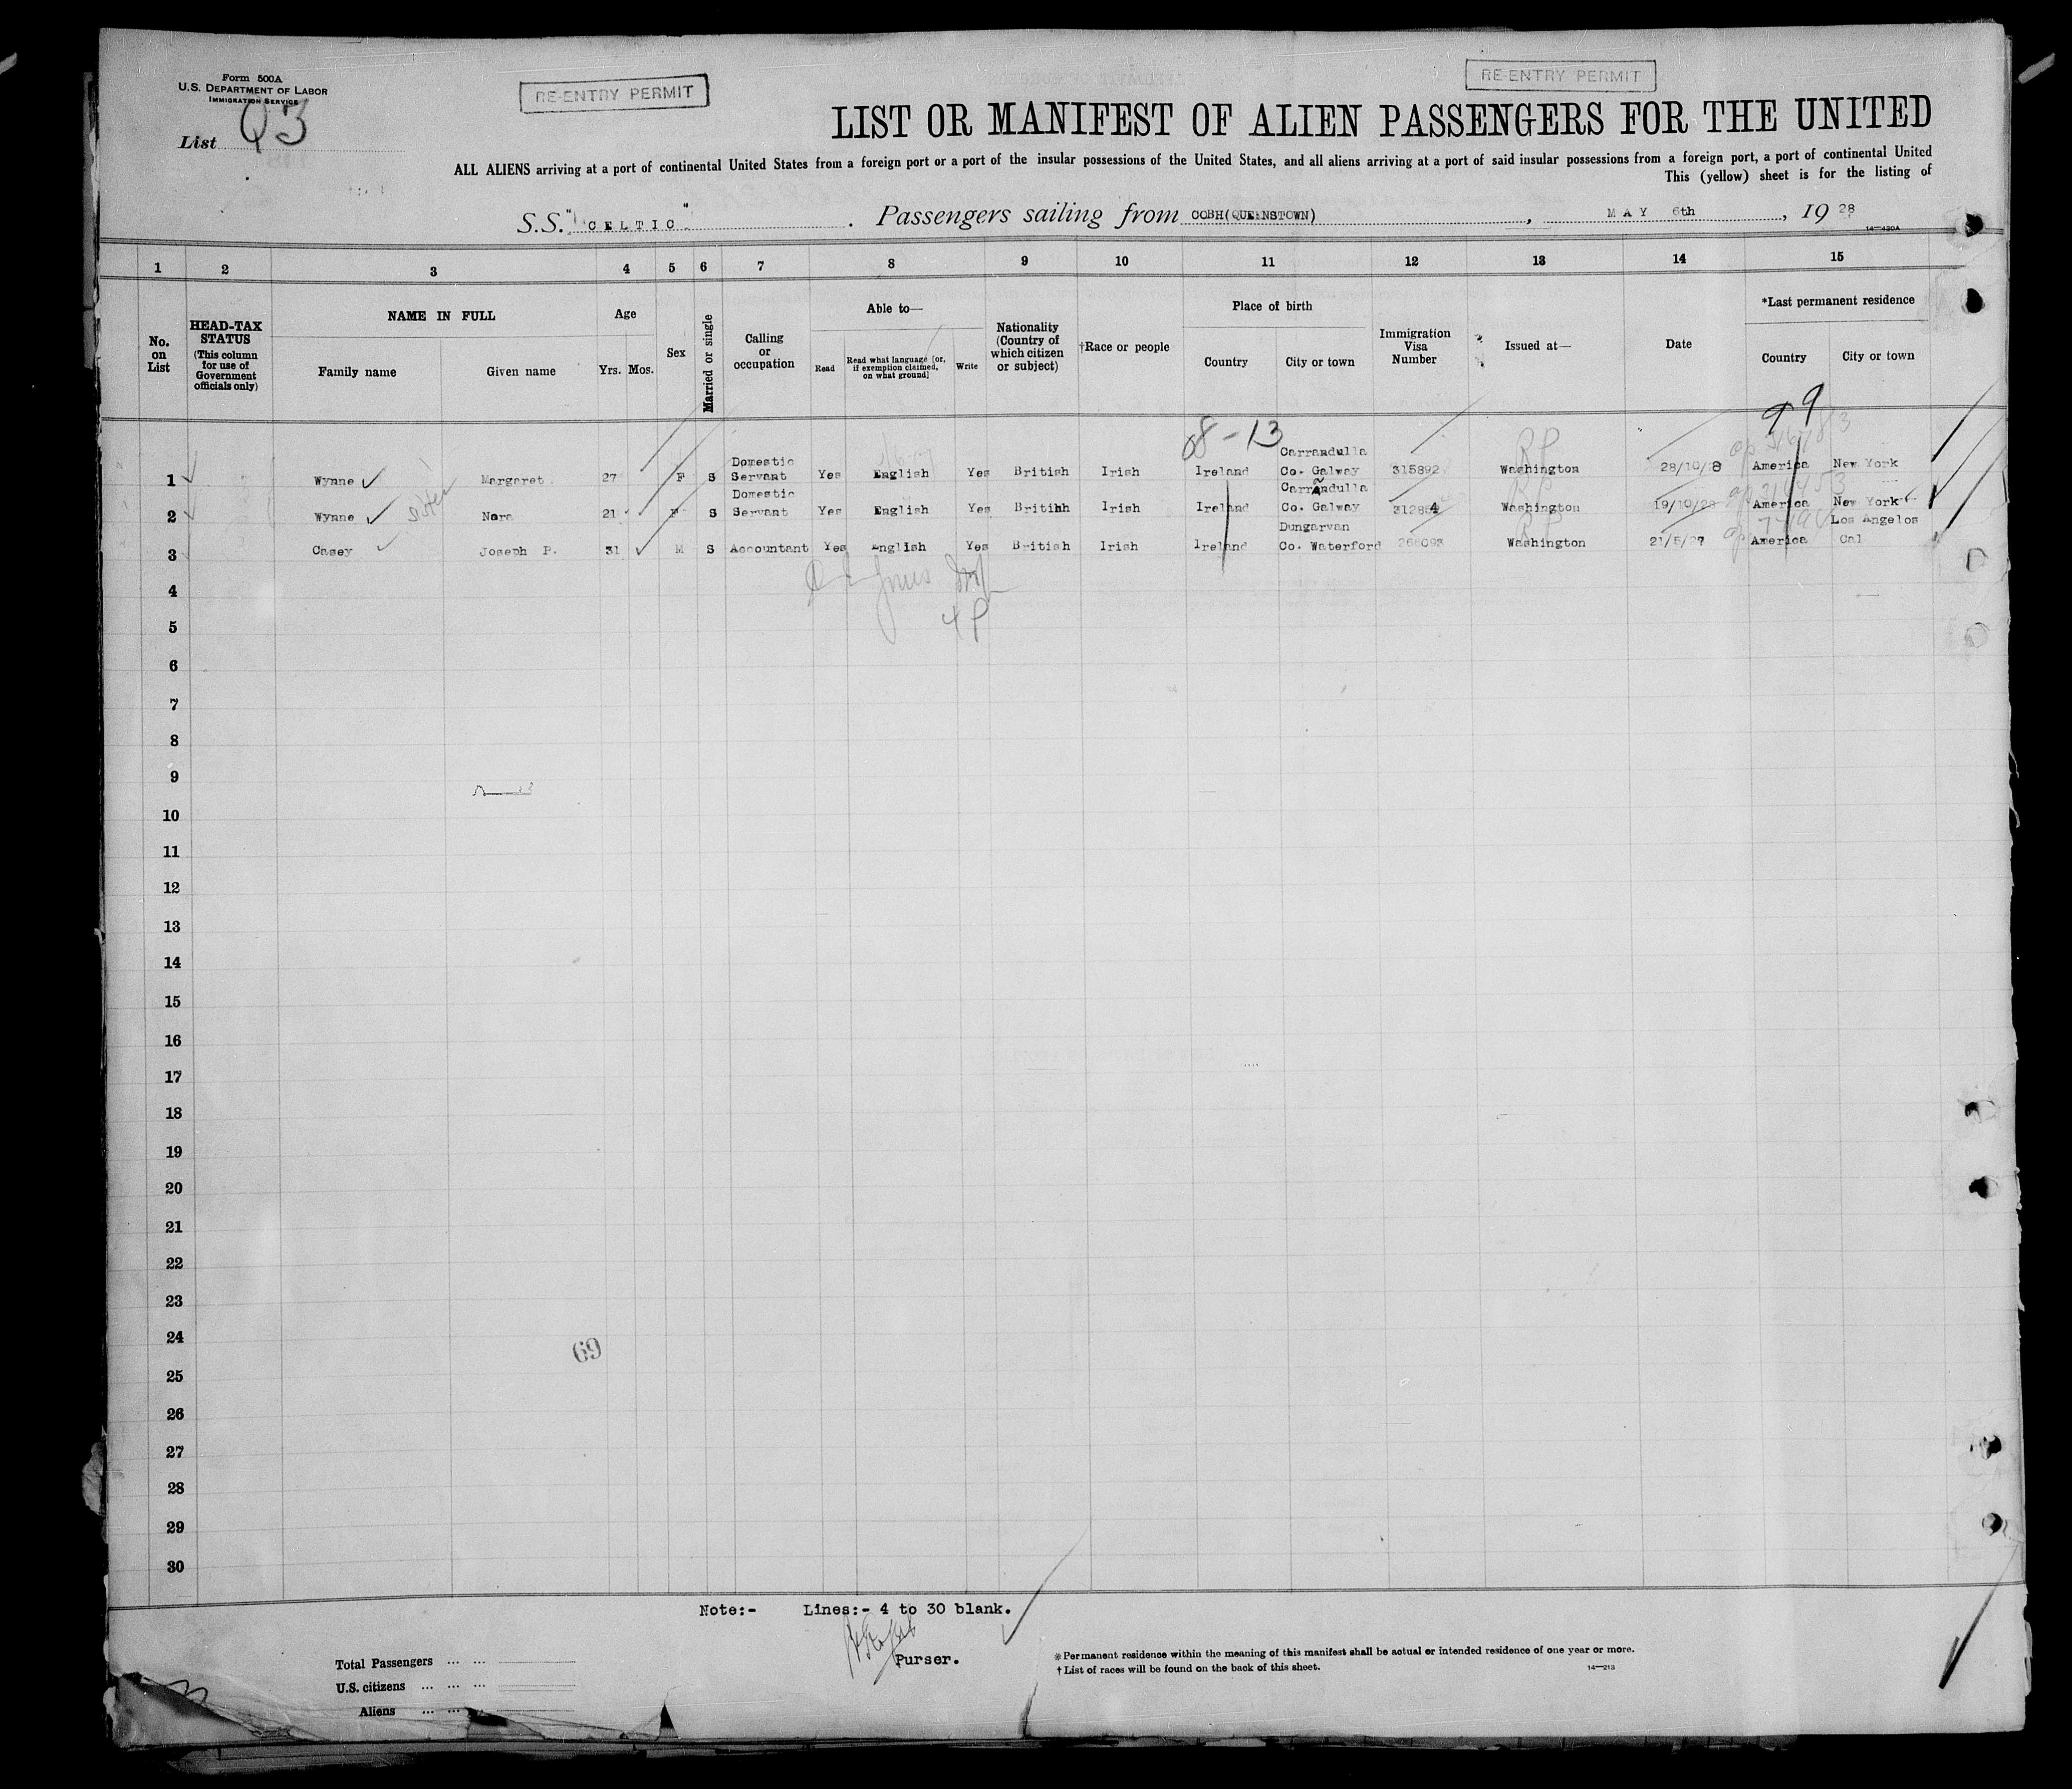 Form 500A
U.S. DEPARTMENT OF LABOR
IMMIGRATION SERVICE
RE-ENTRY PERMIT
RE-ENTRY PERMIT
List Q3
LIST OR MANIFEST OF ALIEN PASSENGERS FOR THE UNITED
ALL ALIENS arriving at a port of continental United States from a foreign port or a port of the insular possessions of the United States, and all aliens arriving at a port of said insular possessions from a foreign port, a port of continental United
This (yellow) sheet is for the listing of
S.S. "CELTIC". Passengers sailing from COBH(QUEENSTOWN), MAY 6th, 1928
14-430A
1 2 3 4 5 6 7 8 9 10 11 12 13 14 15
No. on List
HEAD-TAX STATUS (This column for use of Government officials only)
NAME IN FULL
Family name Given name
Age
Yrs. Mos.
Sex
Married or single
Calling or occupation
Able to—
Read Read what language [or, if exemption claimed, on what ground] Write
Nationality (Country of which citizen or subject)
†Race or people
Place of birth
Country City or town
Immigration Visa Number
Issued at—
Date
*Last permanent residence
Country City or town
99
8-13
1 Wynne Margaret 27 F S Domestic Servant Yes English Yes British Irish Ireland Carrandulla Co. Galway 315892 Washington 28/10/8 America New York
sister
2 Wynne Nora 21 F S Domestic Servant Yes English Yes Britihh Irish Ireland Carrandulla Co. Galway Washington America New York
3 Casey Joseph P. 31 M S Accountant Yes English Yes British Irish Ireland Dungarvan Co. Waterford Washington 21/5/27 America Los Angelos Cal
RP
RP
RP
4
5
6
7
8
9
10
11
12
13
14
15
16
17
18
19
20
21
22
23
24
69
25
26
27
28
29
30
Note:- Lines:- 4 to 30 blank.
Purser.
Total Passengers ... ...
U.S. citizens ... ... ...
Aliens ... ... ...
* Permanent residence within the meaning of this manifest shall be actual or intended residence of one year or more.
† List of races will be found on the back of this sheet.
14-213